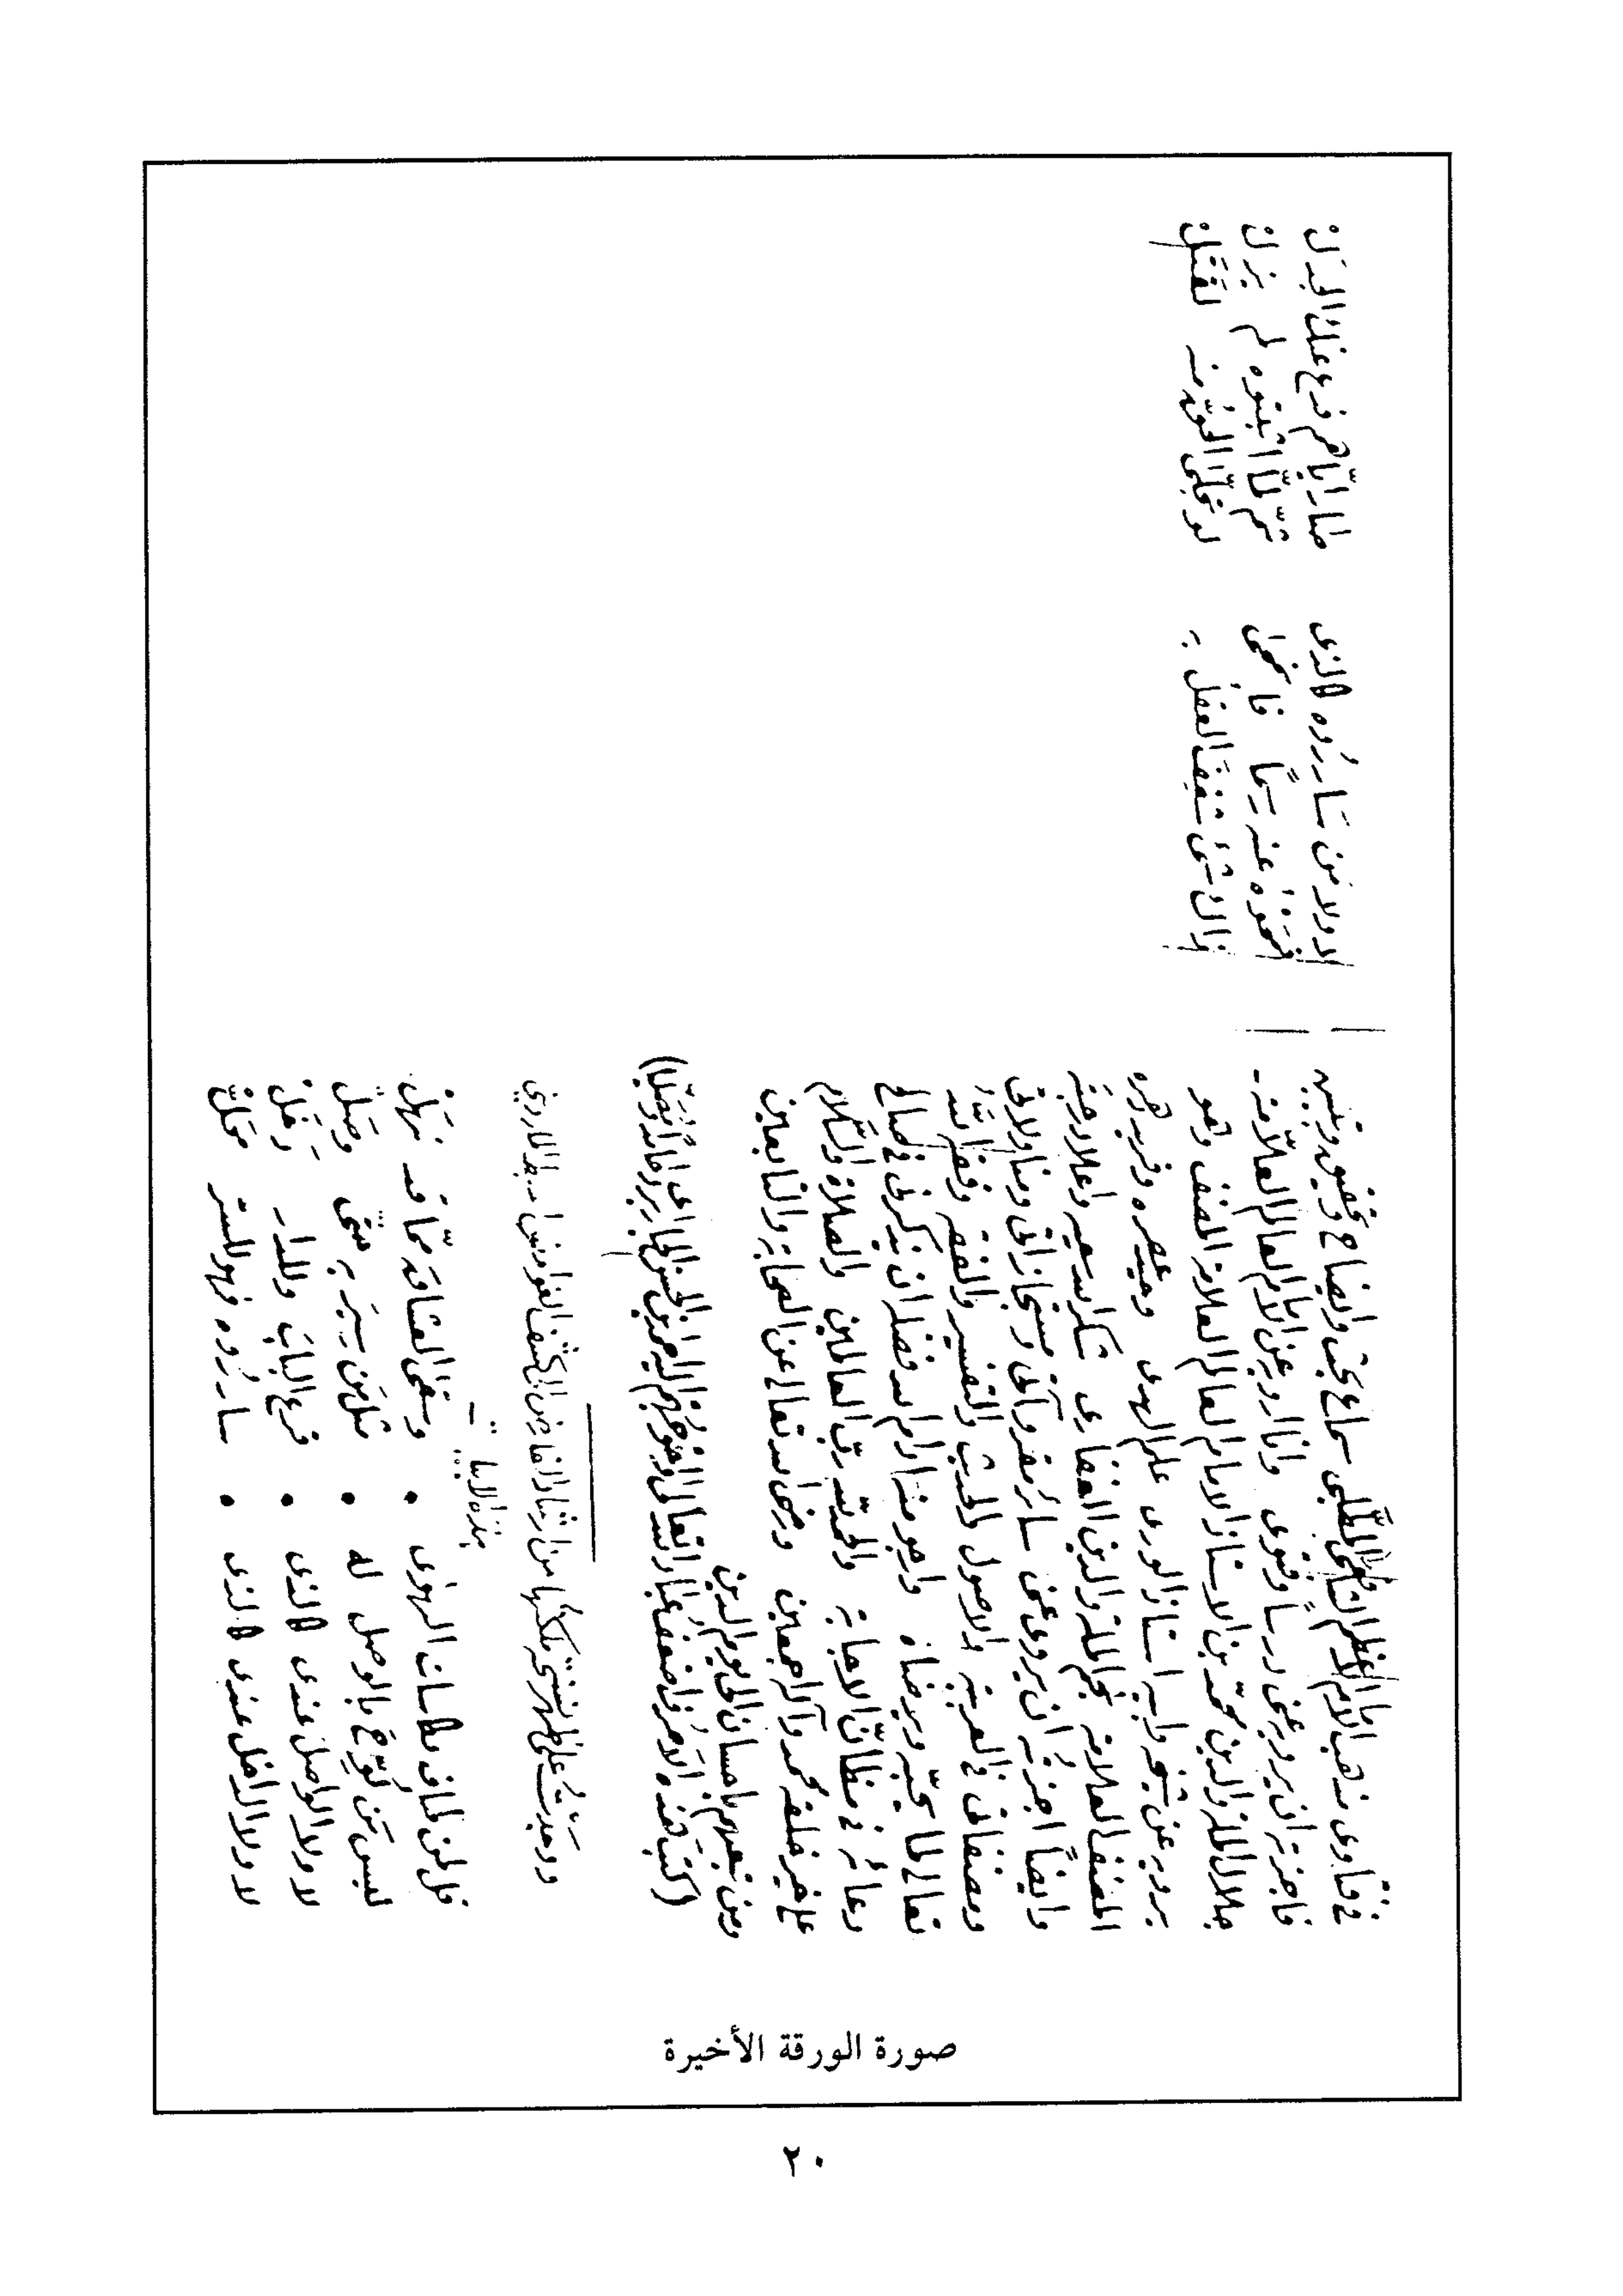 في فتاوى مذهب الامام الاعظم الشافعي المطلبي سماع بحث وايضاح وتحقيق وتبيين
فاجزته أن يرويه عني درساً وفتوى وانا ارويه عن الامام العالم العلّامة
جلال الملة والدين محمّد بن الاستاذ الامام العالم العلامة المصنف وهو
يرويه عن شيخه وابيه استاذ الورى علم الهدى وحيد عصره وفريد دهره
المصنف العلامة نجم الملة والدين الغفارى شكر الله سعيه واعلا درجته
وايضاً اجزته أن يروى عني سائر مقروآتي ومستجازاتي ومناولاتي
ومصنفاتي في العربية والاصول والحديث والتفسير والفقه وفقه الله
تعالى لما يحبّه ويرضاه وارجو منه ادام الله فضله ان يذكرني في صالح
دعائه في مظانّ الاجابة والحمد لله ربّ العالمين والصلاة والسّلام
على خير خلقه محمد وآله اجمعين ورضي الله تعالى عن الصحابة والتابعين
ومن تبعهم باحسان الى يوم الدين
(كتب هذه الاحرف اضعف عباد الله تعالى واحوجهم اليه احمد بن الحسن الجاربردي حامداً ومصليا)
وجدت على ظهر نسخة ملكتها من ارشاد الفارض الى كشف الغوامض لسبط المارديني
هذه الابيات
قل لمن طاف بكاسات الهوى • وسقى العشاق ممّا قد نهل
ليس من لوّح بالوصل له • مثل من سير به حتّى وصل
لا ولا الواصل عندى كالذى • قرع الباب وللدار دخل
لا ولا الداخل عندى كالذى • سارروه فهو للستر محل
لا ولا من سارروه كالذى صار ايّاهم فدع عنك الجدل
فمحوه عنه رسمًا فامحى ثم لمّا اثبتوه لم يزل
ذاك شئ العقل به لو تجلّى الحق منه لقتل
صورة الورقة الأخيرة
٢٠